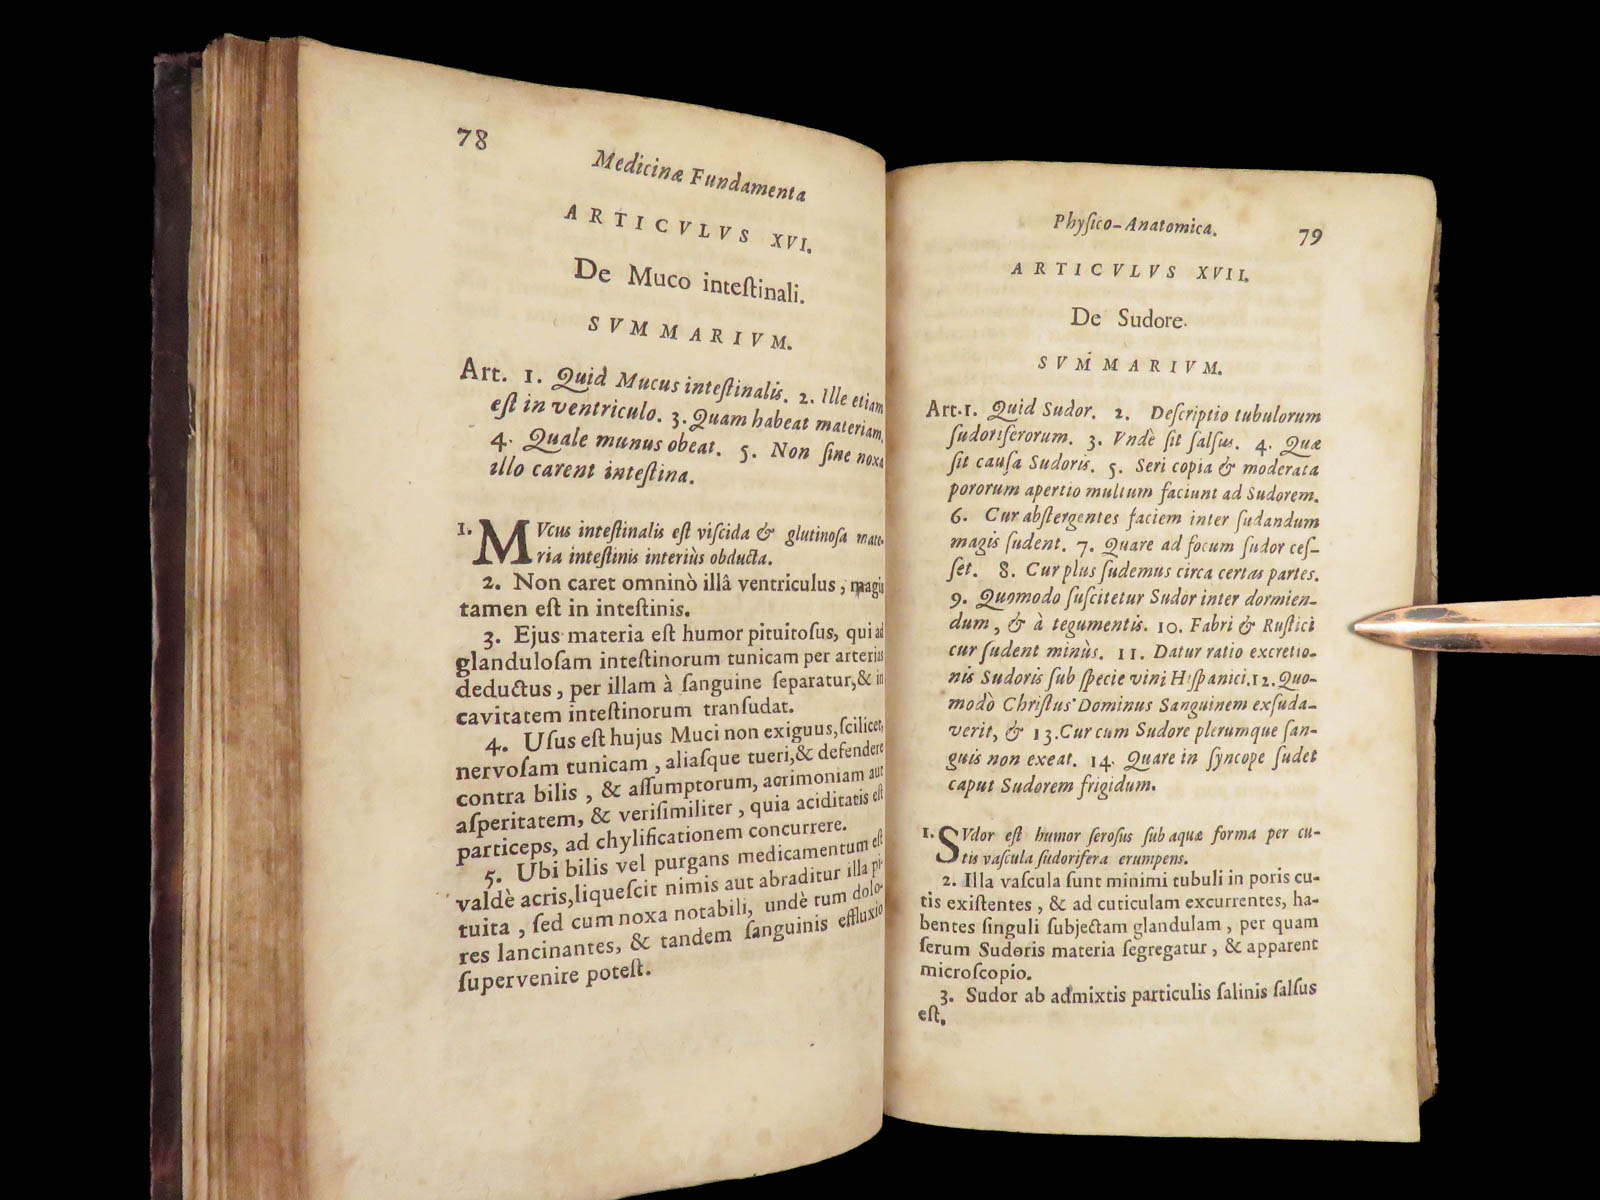 78
Medicinæ Fundamenta
ARTICVLVS XVI.
De Muco inteſtinali.
SVMMARIVM.
Art. 1. Quid Mucus inteſtinalis. 2. Ille etiam
eſt in ventriculo. 3. Quam habeat materiam.
4. Quale munus obeat. 5. Non ſine noxa
illo carent inteſtina.
1. MVcus inteſtinalis eſt viſcida & glutinoſa mate-
ria inteſtinis interiùs obducta.
2. Non caret omninò illâ ventriculus, magis
tamen eſt in inteſtinis.
3. Ejus materia eſt humor pituitoſus, qui ad
glanduloſam inteſtinorum tunicam per arterias
deductus, per illam à ſanguine ſeparatur, & in
cavitatem inteſtinorum tranſudat.
4. Uſus eſt hujus Muci non exiguus, ſcilicet,
nervoſam tunicam, aliaſque tueri, & defendere
contra bilis, & aſſumptorum, acrimoniam aut
aſperitatem, & veriſimiliter, quia aciditatis eſt
particeps, ad chylificationem concurrere.
5. Ubi bilis vel purgans medicamentum eſt
valdè acris, liqueſcit nimis aut abraditur illa pi-
tuita, ſed cum noxa notabili, undè tum dolo-
res lancinantes, & tandem ſanguinis effluxio
ſupervenire poteſt.
Phyſico-Anatomica. 79
ARTICVLVS XVII.
De Sudore.
SVMMARIVM.
Art. 1. Quid Sudor. 2. Deſcriptio tubulorum
ſudoriferorum. 3. Vndè ſit ſalſus. 4. Quæ
ſit cauſa Sudoris. 5. Seri copia & moderata
pororum apertio multum faciunt ad Sudorem.
6. Cur abſtergentes faciem inter ſudandum
magis ſudent. 7. Quare ad focum ſudor ceſ-
ſet. 8. Cur plus ſudemus circa certas partes.
9. Quomodo ſuſcitetur Sudor inter dormien-
dum, & à tegumentis. 10. Fabri & Ruſtici
cur ſudent minùs. 11. Datur ratio excretio-
nis Sudoris ſub ſpecie vini Hiſpanici. 12. Quo-
modò Chriſtus Dominus Sanguinem exſuda-
verit, & 13. Cur cum Sudore plerumque ſan-
guis non exeat. 14. Quare in ſyncope ſudet
caput Sudorem frigidum.
1. SVdor eſt humor ſeroſus ſub aquæ forma per cu-
tis vaſcula ſudorifera erumpens.
2. Illa vaſcula ſunt minimi tubuli in poris cu-
tis exiſtentes, & ad cuticulam excurrentes, ha-
bentes ſinguli ſubjectam glandulam, per quam
ſerum Sudoris materia ſegregatur, & apparent
microſcopio.
3. Sudor ab admixtis particulis ſalinis ſalſus
eſt.